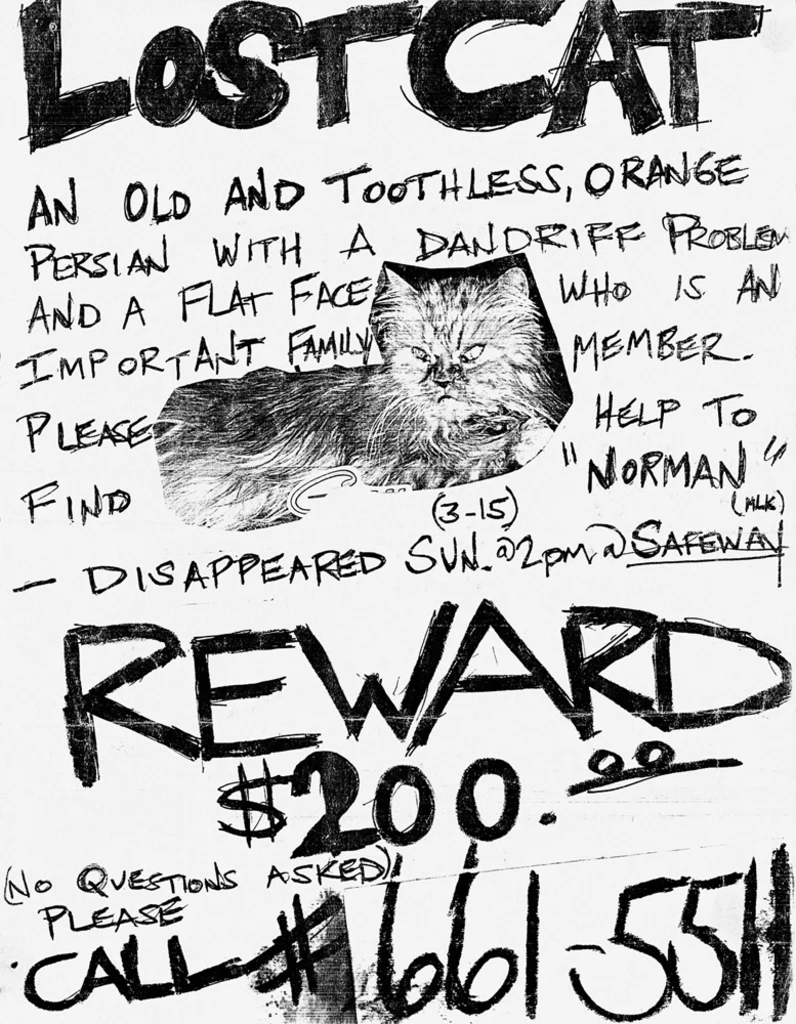 LOST CAT
AN OLD AND TOOTHLESS, ORANGE
PERSIAN WITH A DANDRIFF PROBLEM
AND A FLAT FACE WHO IS AN
IMPORTANT FAMILY MEMBER.
PLEASE HELP TO
FIND "NORMAN"
(3-15) (MLK)
– DISAPPEARED SUN. @ 2pm @ SAFEWAY
REWARD
$200.00
(NO QUESTIONS ASKED)
PLEASE
CALL # 661-5511